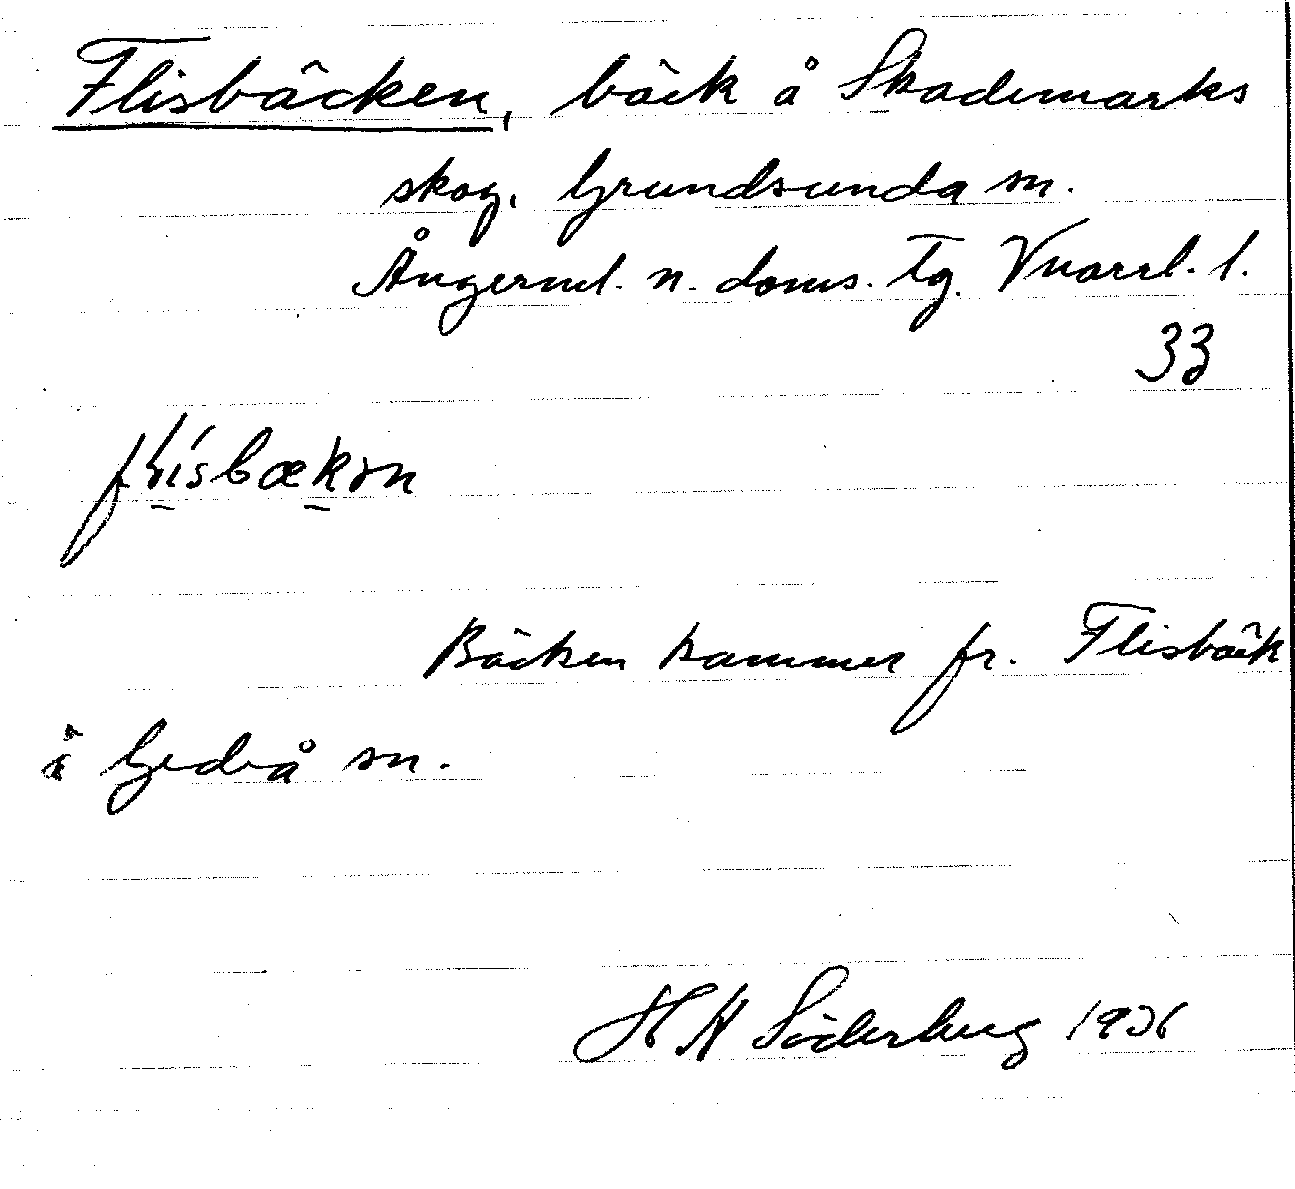 Flisbäcken, bäck å Skademarks
skog, Grundsunda sn.
Ångerml. n. doms. Tg. Vnarrl. l.
33
flisbækən
Bäcken kommer fr. Flisbäck
i Gideå sn.
H H Söderberg 1936